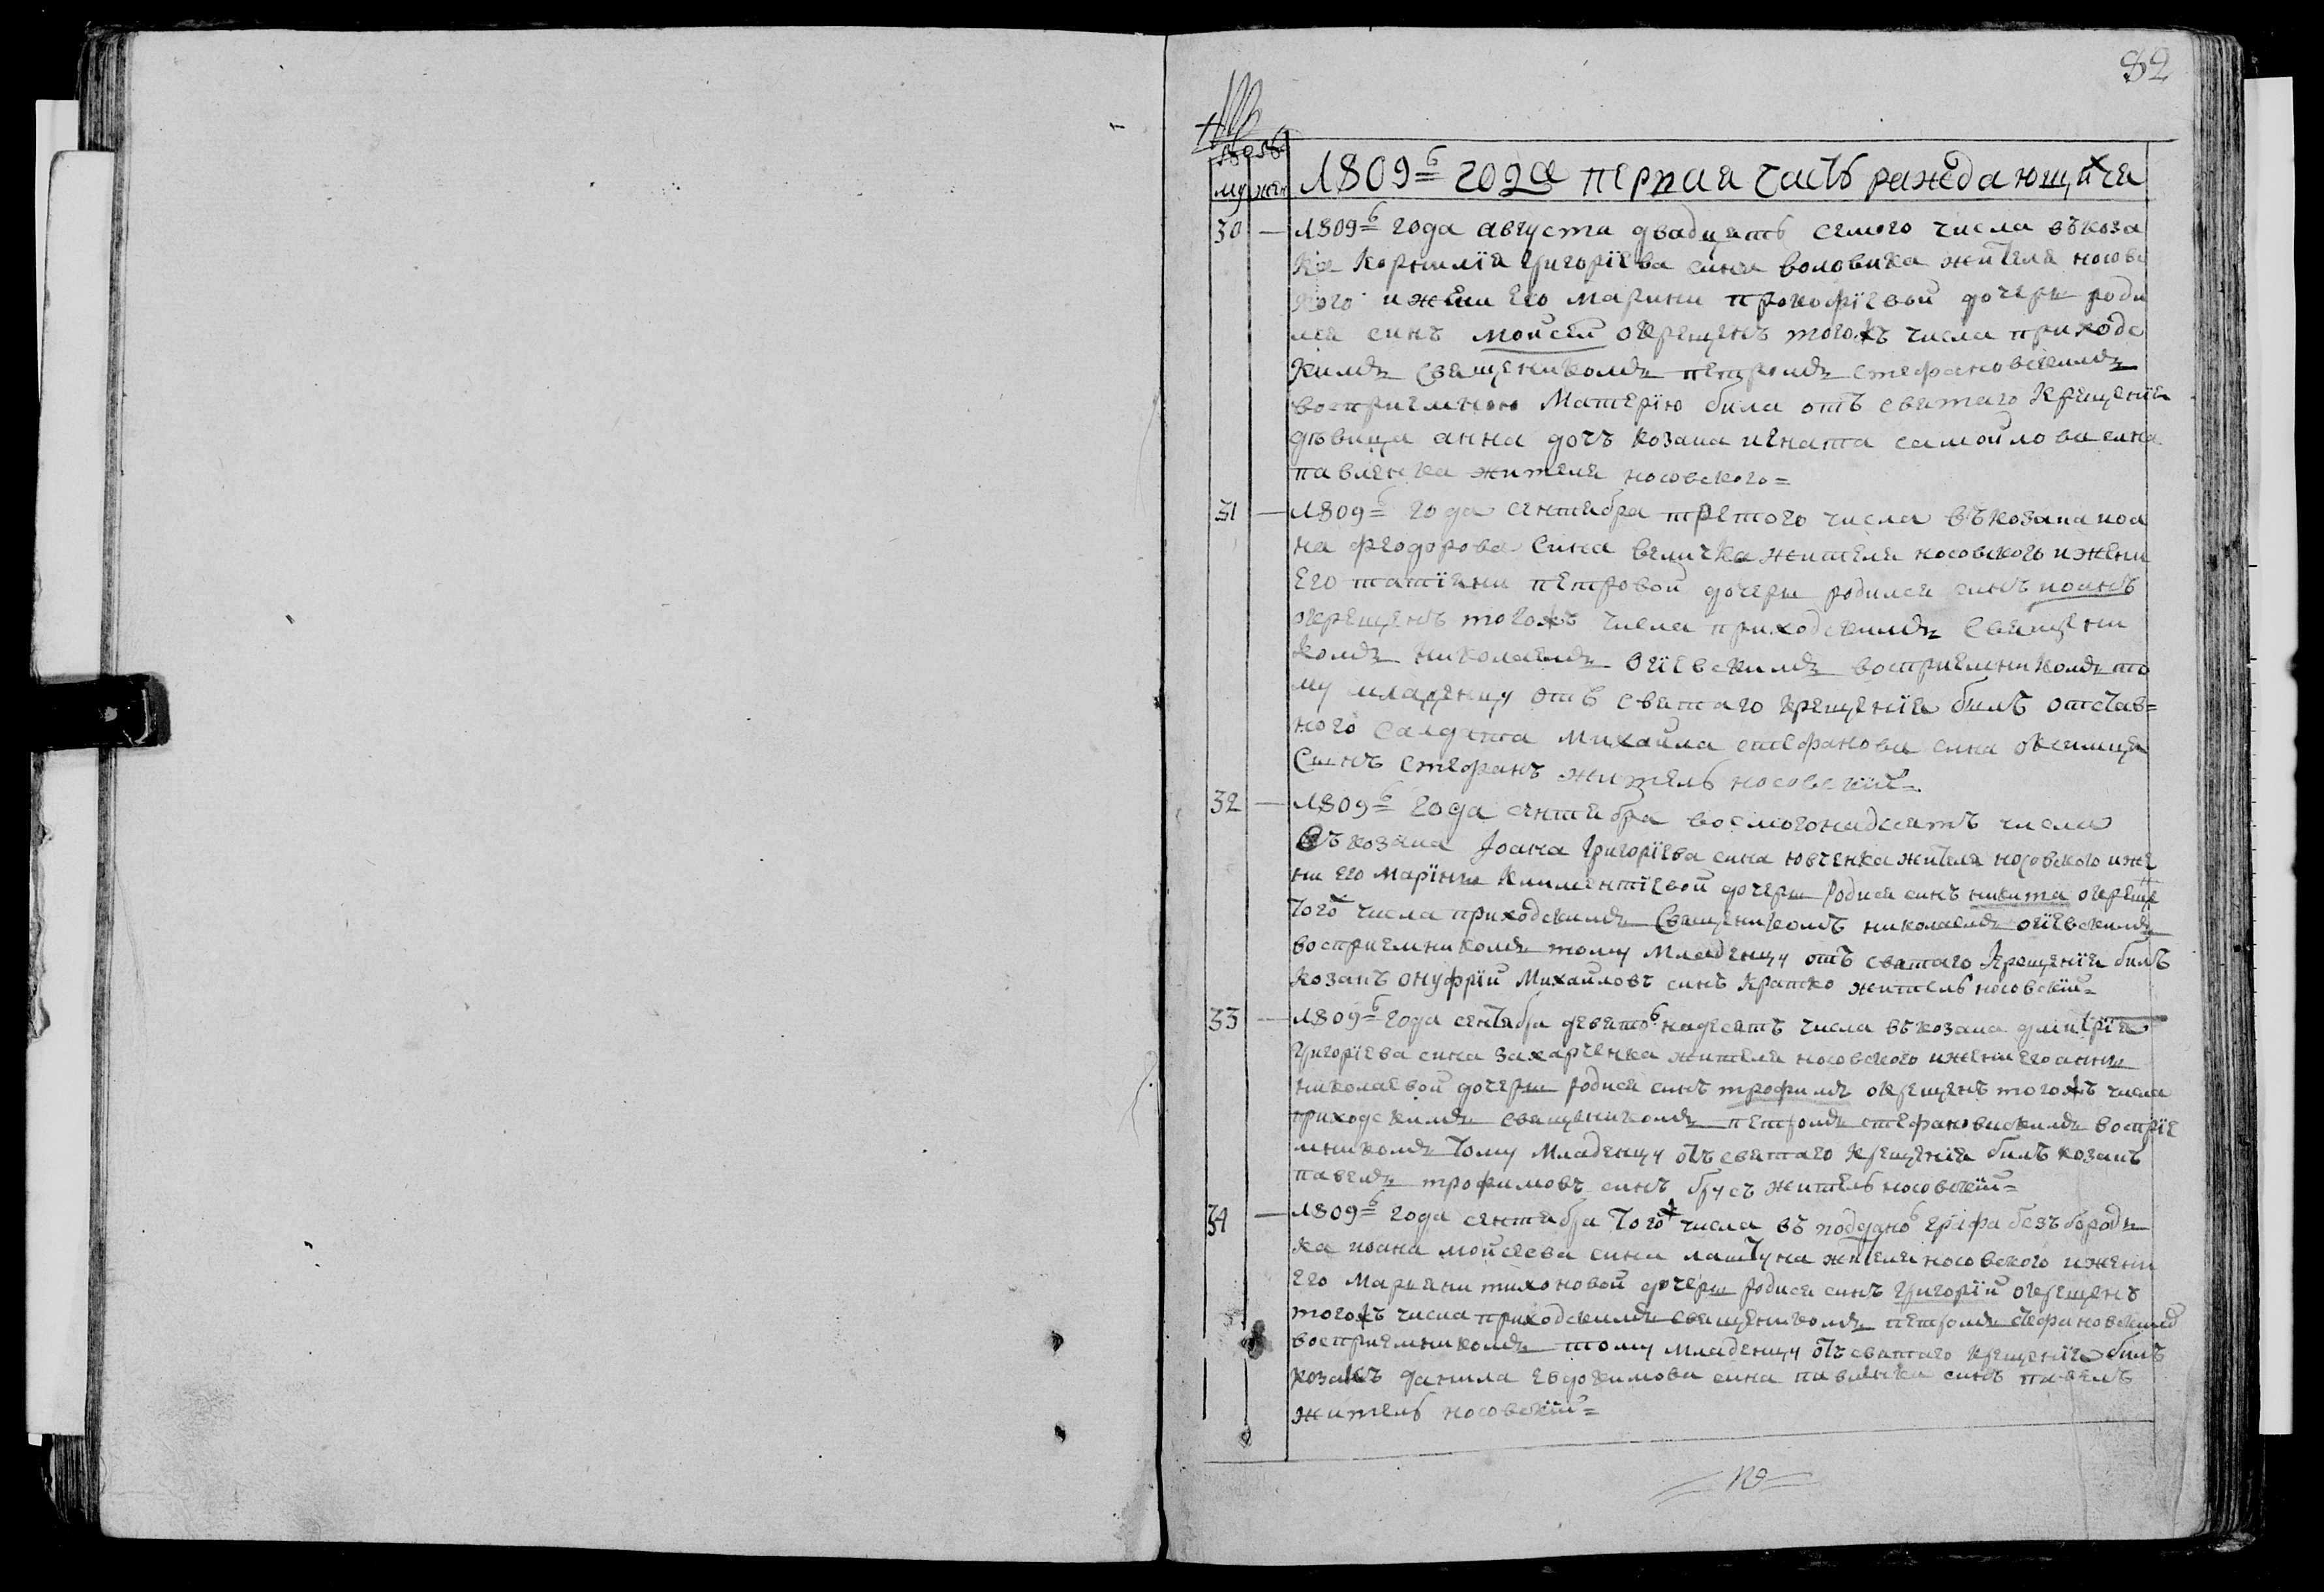 82
му жен 1809г года первая часть раждающихся
30 — 1809г года августа двадцять семого числа въ коза
ка Корнилїя Григорїева сина воловика жителя носовс
кого и жени его Марини прокофїевой дочери роди
лся синъ мойсей окрещенъ тогожъ числа приходс
кимъ священикомъ петромъ стефановскимъ
восприемною Матерїю била отъ святаго Крещенїя
дѣвица анна дочъ козака игната самойлова сина
павленка жителя носовского=
31 — 1809г года сентября третого числа въ козака иоа
на феодорова сина величка жителя носовского и жени
Его татїани петровой дочери родился синъ иоанъ
окрещенъ тогожъ числа приходскимъ Священи
комъ николаемъ огїевскимъ восприемникомъ то
му младенцу отъ святаго крещенїя билъ отстав=
ного Салдата Михайла стефанова сина
Синъ Стефанъ житель носовскїй=
32 — 1809г года сентября восмогонадесятъ числа
Въ козака Іоана Григорїева сина ювченка жителя носовского и же
ни его Марїини Климентїевой дочери родися синъ никита окреще
того числа приходскимъ Священикомъ николаемъ огїевскимъ
восприемникомъ тому Младенцу отъ святаго Крещенїя билъ
козакъ онуфрїй Михайловъ синъ Кратко житель носовскїй=
33 — 1809г года сентября девятогнадесятъ числа въ козака дмитрїя
Григорїева сина захарченка жителя носовского и жени его анни
николаевой дочери родися синъ трофимъ окрещенъ тогожъ числа
приходскимъ священикомъ петромъ стефановскимъ воспрїе
мникомъ тому Младенцу отъ святаго Крещенїя билъ козакъ
павелъ трофимовъ синъ брусъ житель носовскїй=
34 — 1809г года сентября тогож числа въ подданог графа безбородь
ка иоана мойсеева сина лаштуна жителя носовского и жени
его Марияни тихоновой дочери родися синъ Григорїй окрещенъ
тогожъ числа приходскимъ священикомъ петромъ стефановскимъ
восприемникомъ тому младенцу отъ святаго Крещенїя билъ
козакъ данила евдокимова сина павленка синъ павелъ
житель носовскїй=